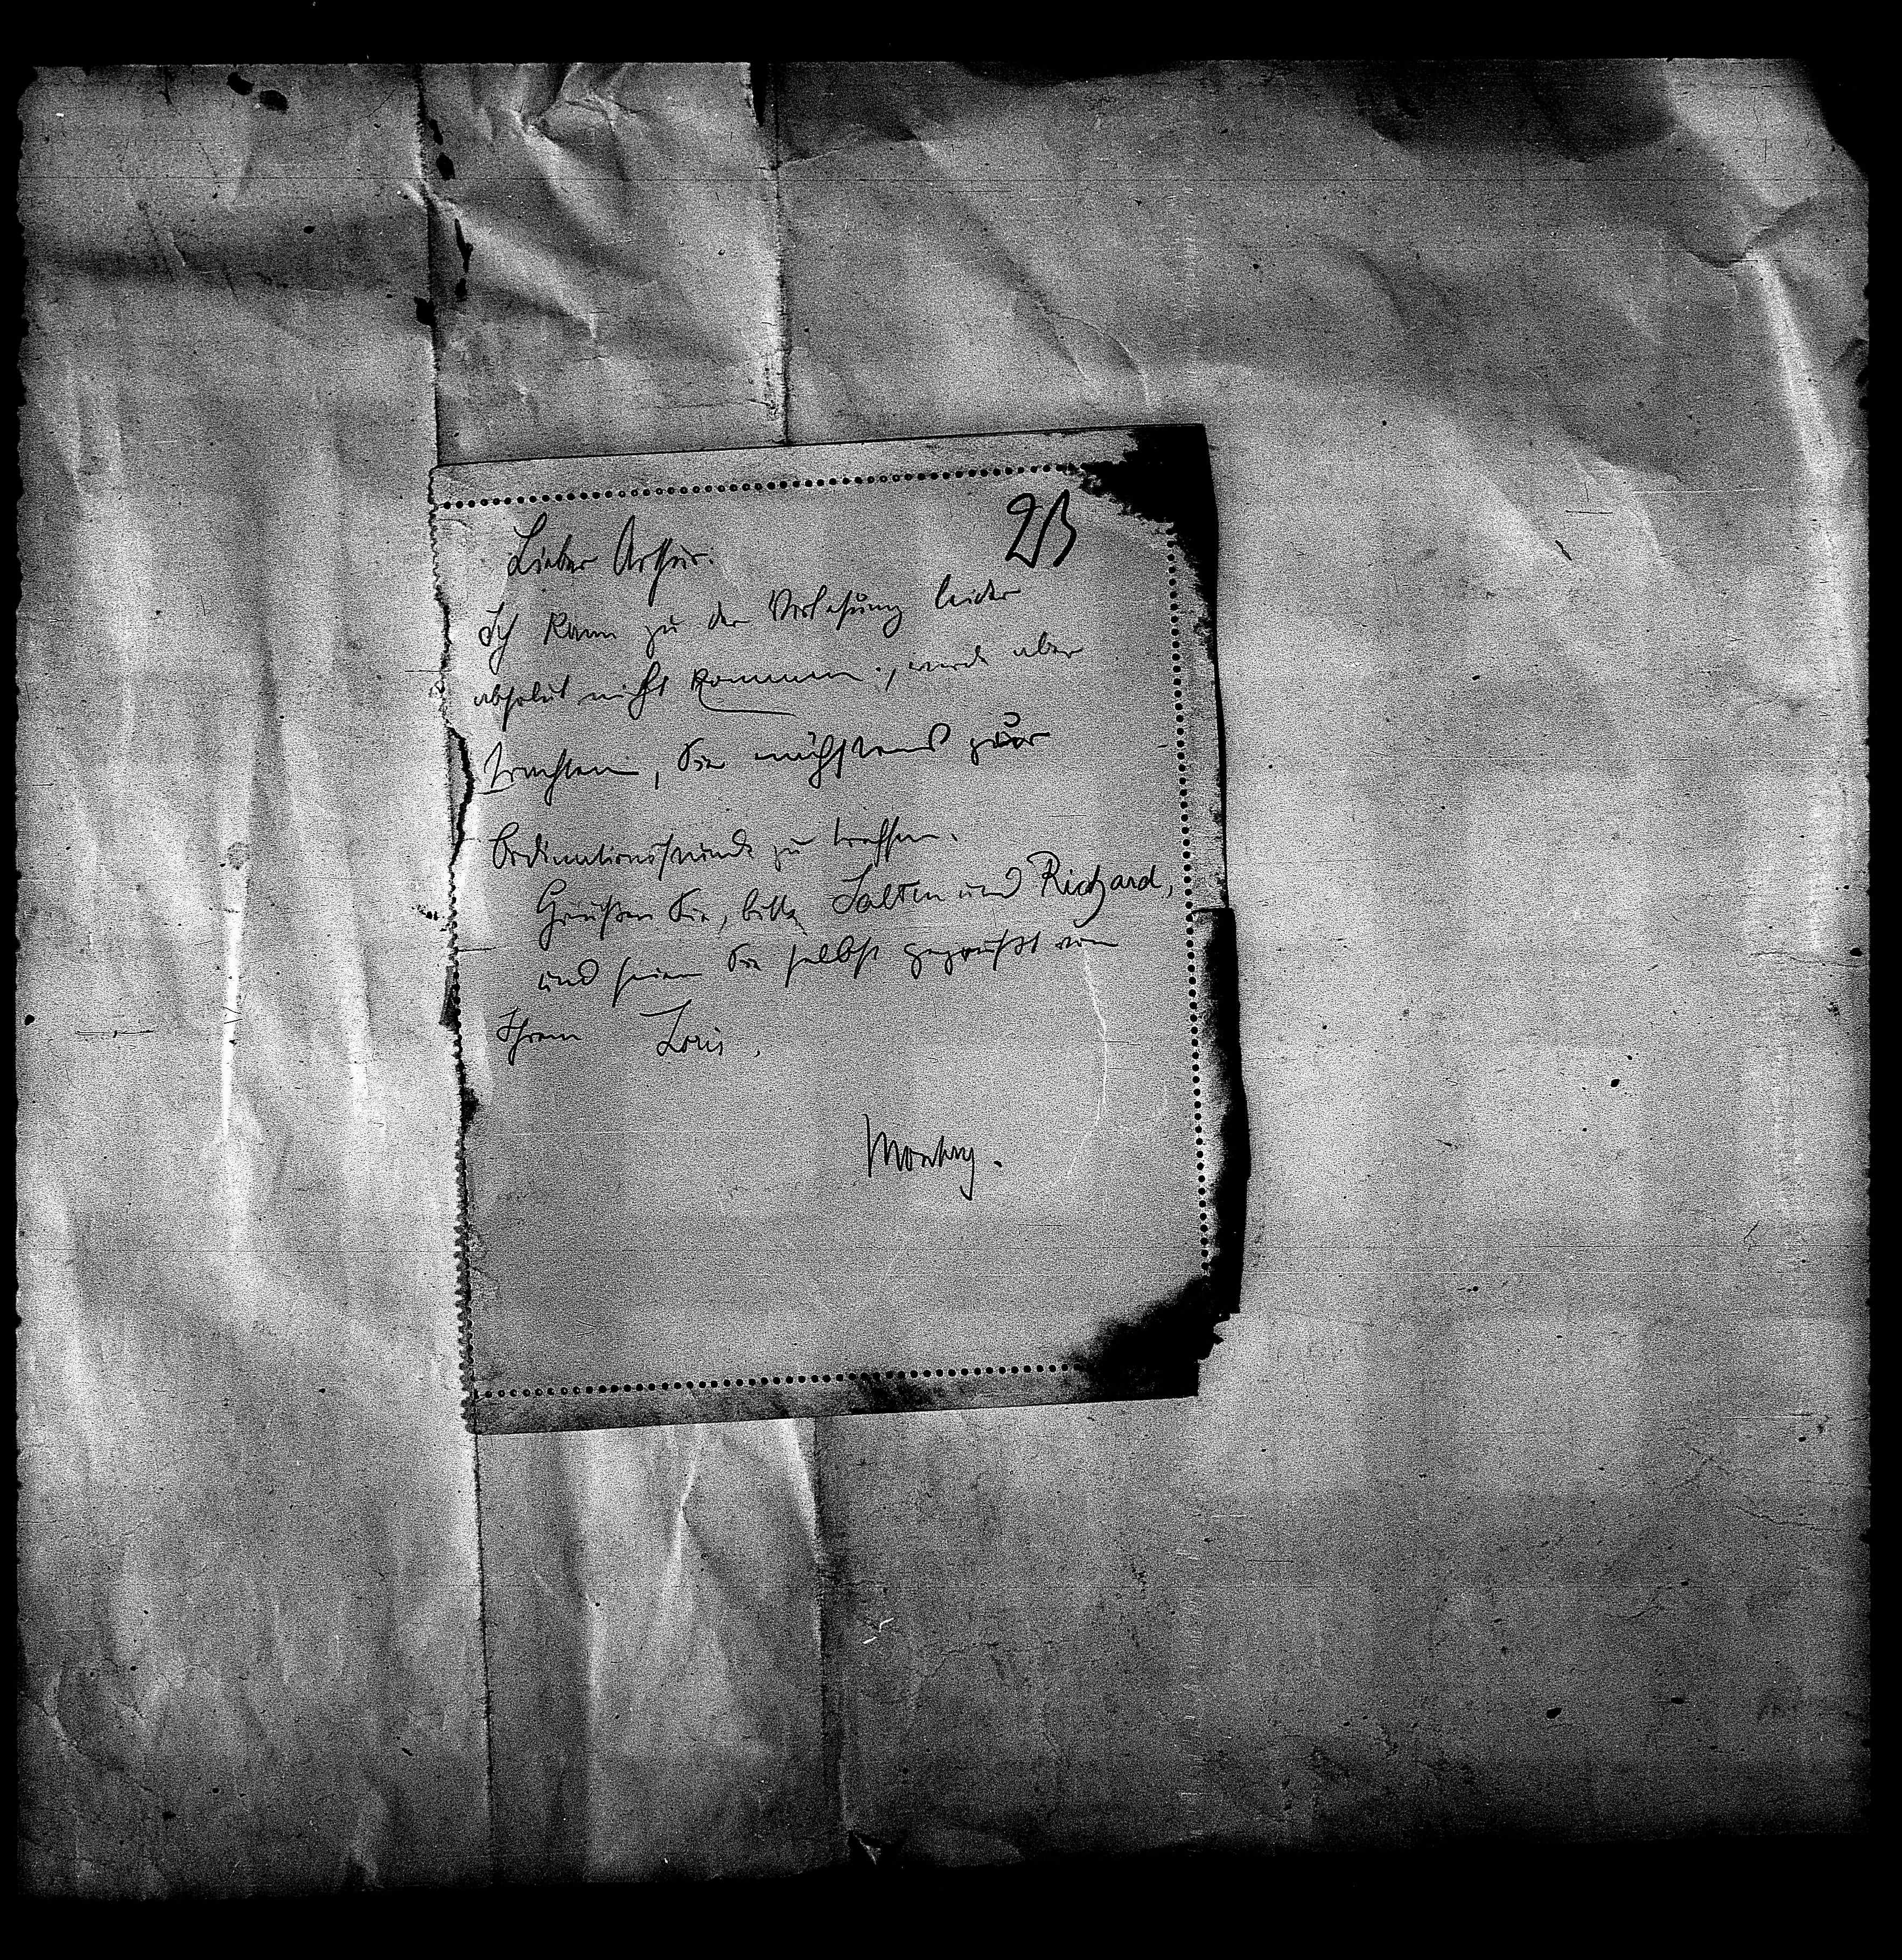 23
Lieber Arthur.
Ich kann zu der Vorlesung leider
absolut nicht kommen, werde aber
trachten, Sie nächstens zur
Ordinationsstunde zu treffen.
Grüßen Sie, bitte Salten und Richard,
und seien Sie selbst gegrüßt von
Ihrem Loris.
Montag.